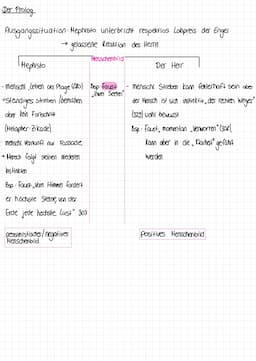 Der Prolog
Ausgangssituation: Mephisto unterbricht respektlos Lobpreis der Engel
→ gelassene Reaktion des Herrn
Menschenbild
Mephisto
Der Herr
- menschl. Leben als Plage (280)
→ Ständiges streben / bemühen
aber kein Fortschritt
(Metapher Zikade)
- menschl. Vernunft nur Farce
→ Mensch folgt seinen niederen
Instinkten
Bsp. Faust „Vom Himmel fordert
er höchste Sterne, von der
Erde jede höchste Lust" 305
pessimistischer/negatives
Menschenbild
Bsp. Faust
- menschl. Streben kann fehlerhaft sein aber
der Mensch ist sich instinktiv „der rechten Weges"
wohl bewusst
Bsp. Faust, momentan „verworren"
kann aber in die „Klarheit" geführt
werden
positives Menschenbild